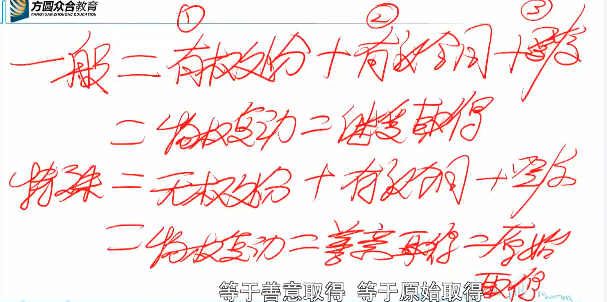 方圆众合教育
FANGYUAN ZHONGHE EDUCATION
① ② ③
一般 = 有权处分 + 有效合同 + 登/交
= 物权变动 = 继受取得
特殊 = 无权处分 + 有效合同 + 登/交
= 物权变动 = 善意取得 = 原始
取得
等于善意取得 等于原始取得